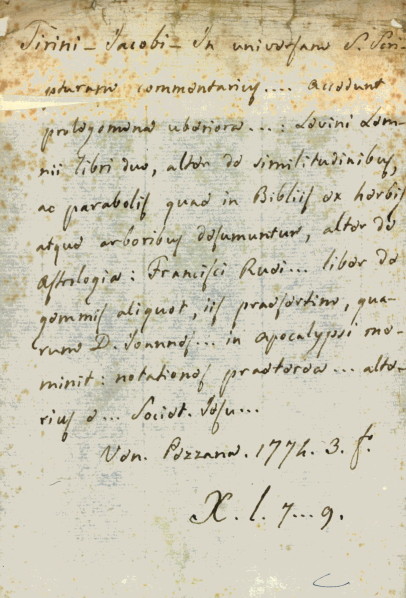 Tirini - Jacobi - In universam S. Scri-
pturam commentarius.... Accedunt
prolegomena uberiora...: Levini Lem-
nii libri duo, alter de similitudinibus,
ac parabolis quae in Bibliis ex herbis
atque arboribus desumuntur, alter de
Astrologia: Francisci Ruei... liber de
gemmis aliquot, iis praesertim, qua-
rum D. Joannes... in Apocalypsi me-
minit: notationes praeterea... alte-
rius e... Societ. Jesu...
Ven. Pezzana. 1774. 3. f.º
X. l. 7...9.